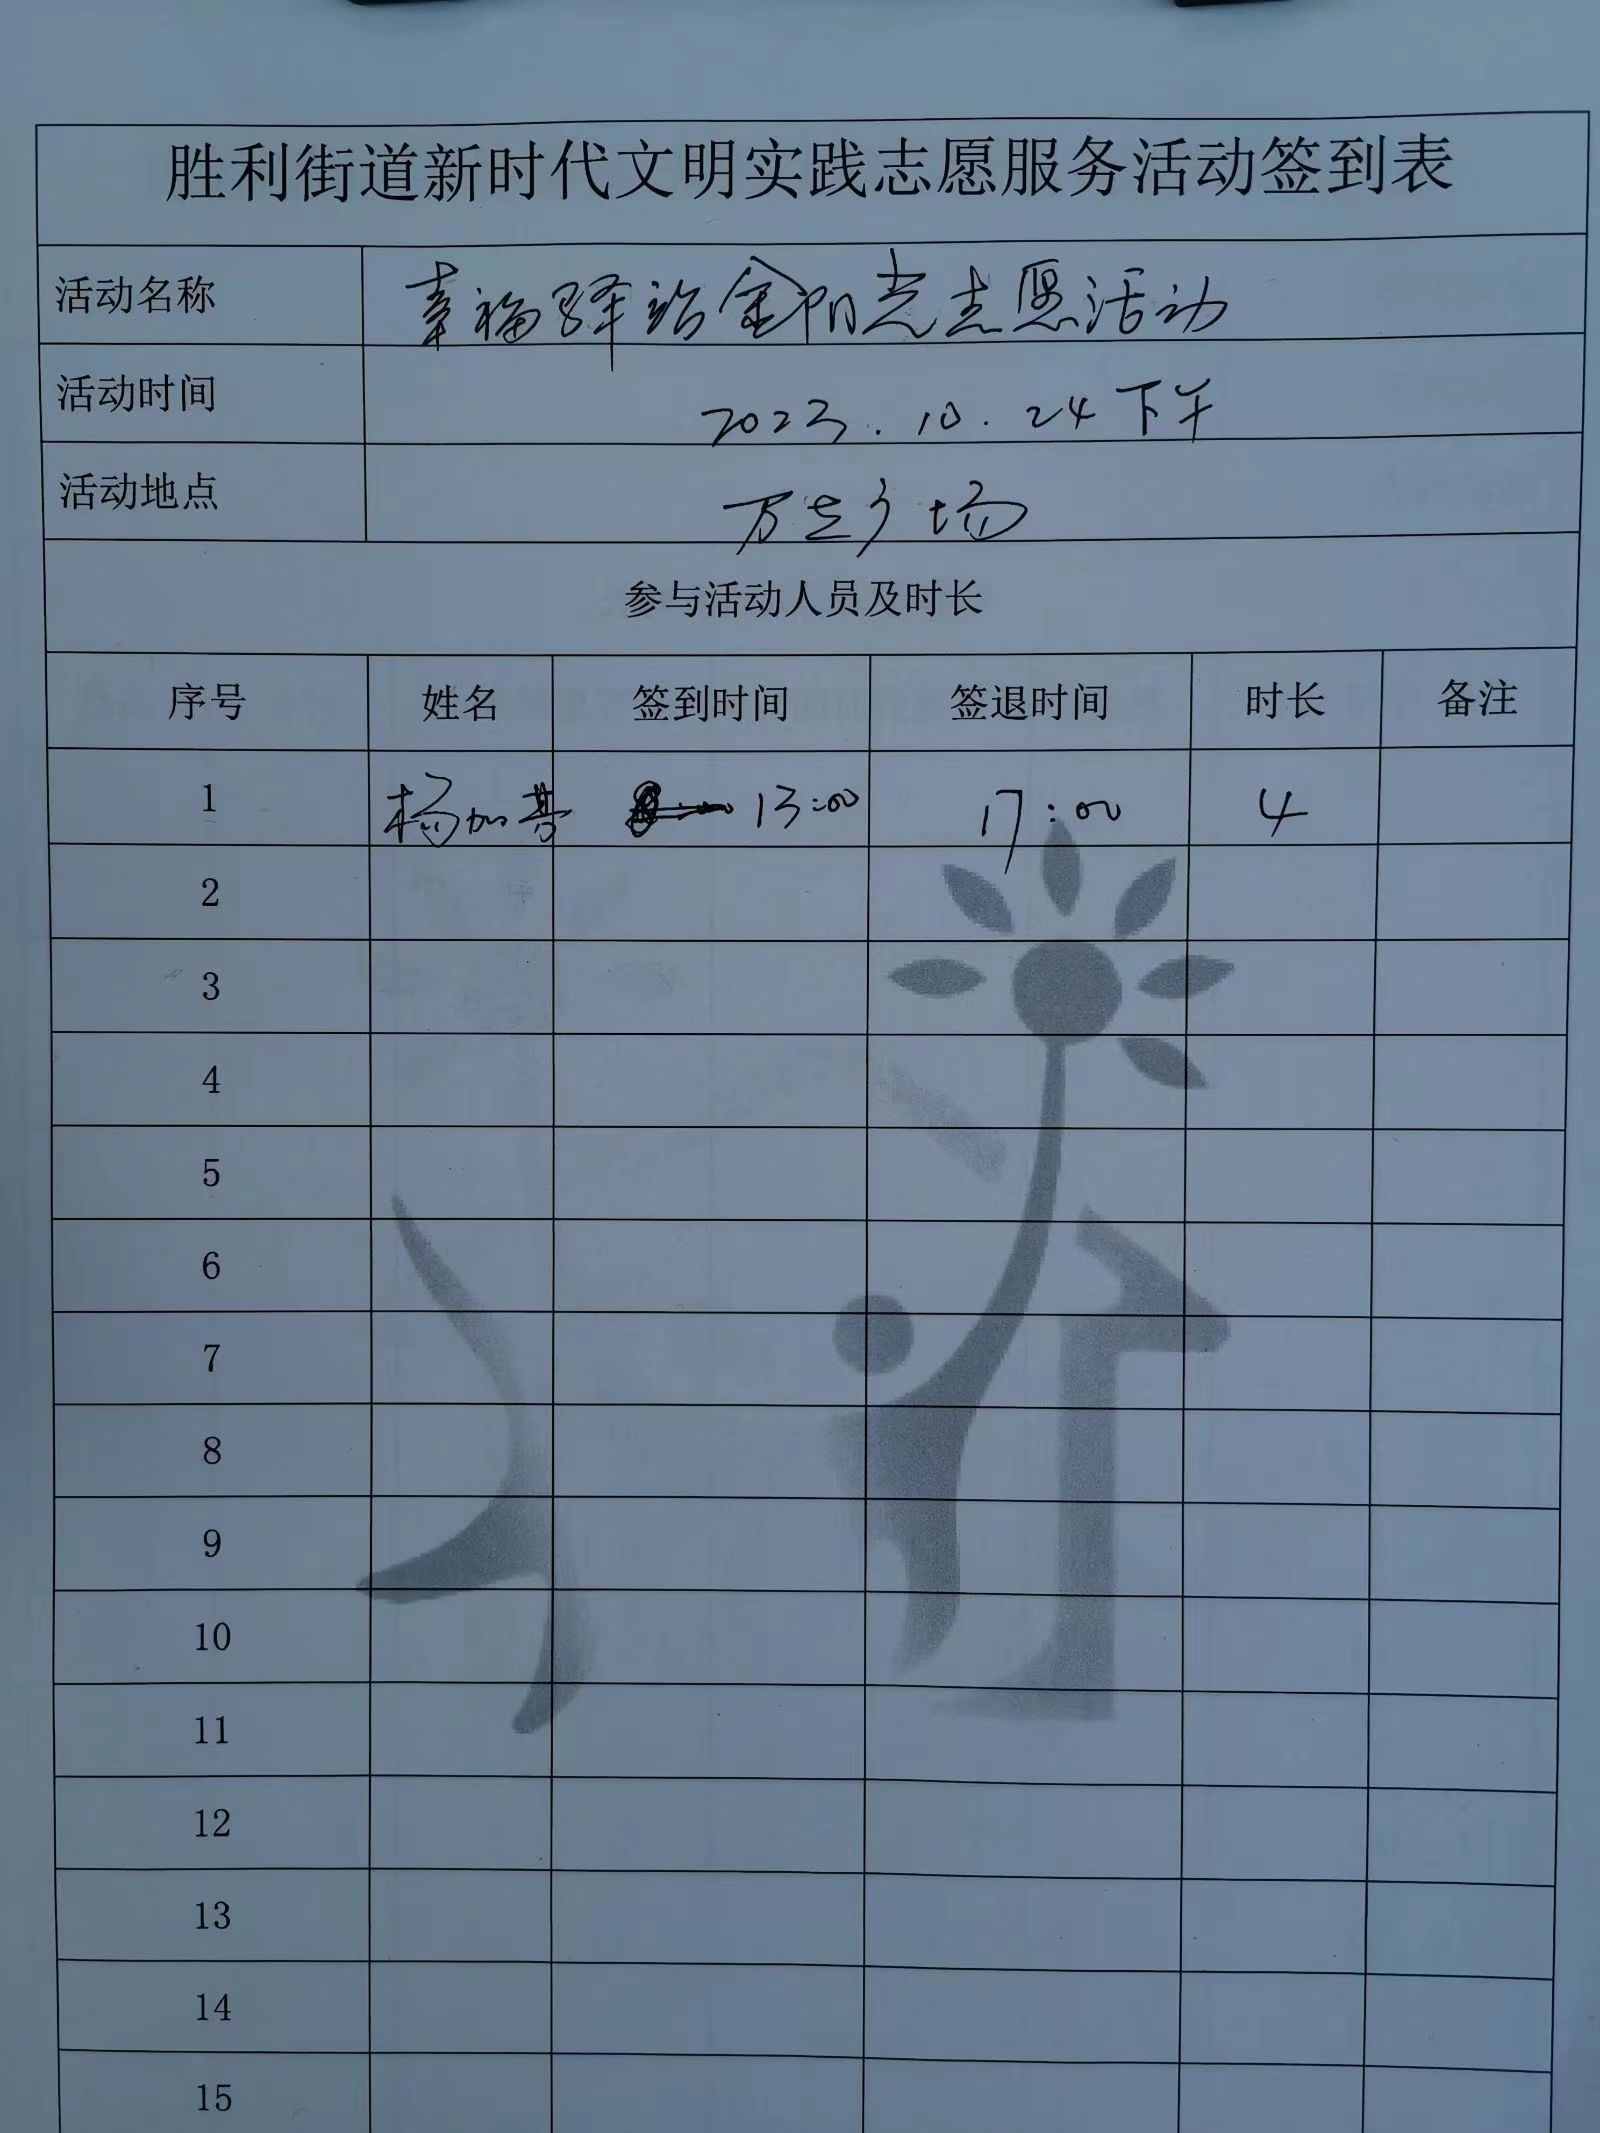 胜利街道新时代文明实践志愿服务活动签到表
活动名称 幸福驿站金阳光志愿活动
活动时间 2023.10.24下午
活动地点 万达广场
参与活动人员及时长
序号 姓名 签到时间 签退时间 时长 备注
1 杨加 13:00 17:00 4
2
3
4
5
6
7
8
9
10
11
12
13
14
15